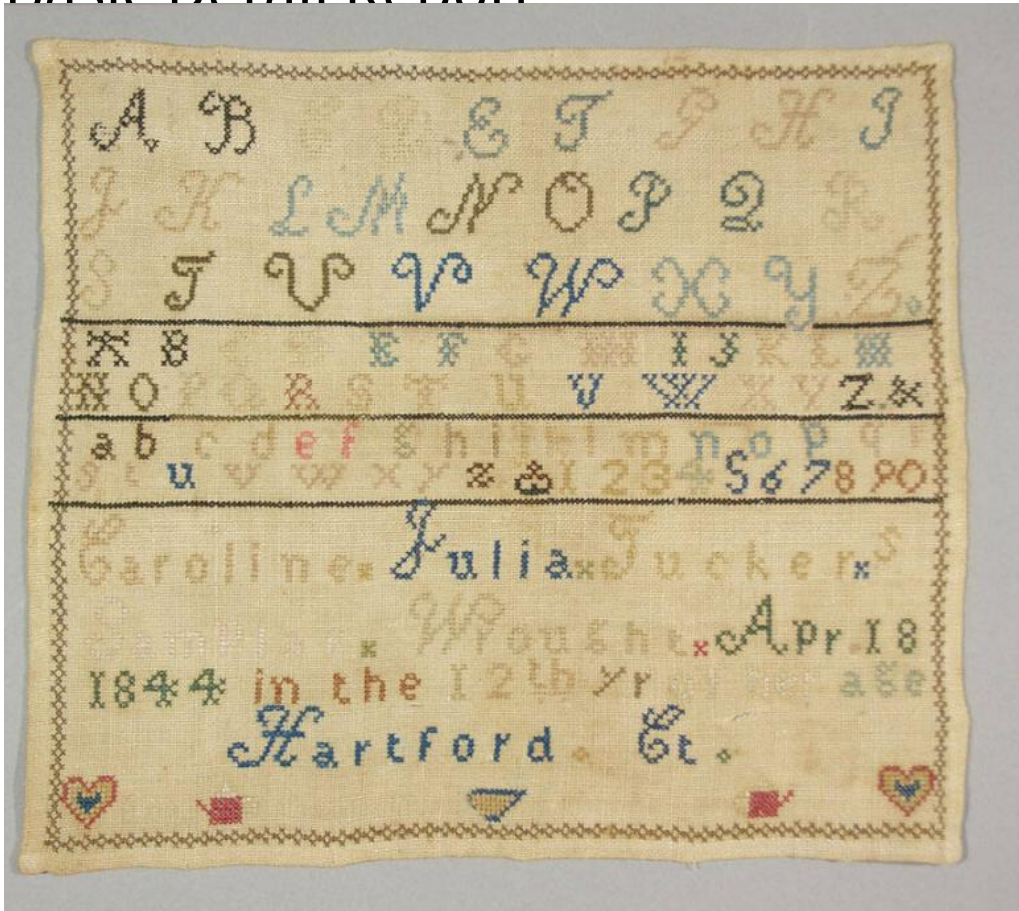 A B C D E F G H I
J K L M N O P Q R
S T U V W X Y Z.
A B C D E F G H I J K L M
N O P Q R S T U V W X Y Z.&
a b c d e f g h i j k l m n o p q r
s t u v w x y z & 1 2 3 4 5 6 7 8 9 0
Caroline Julia Tucker S
Sampler Wrought Apr. 18
1844 in the 12th yr of her age
Hartford. Ct.